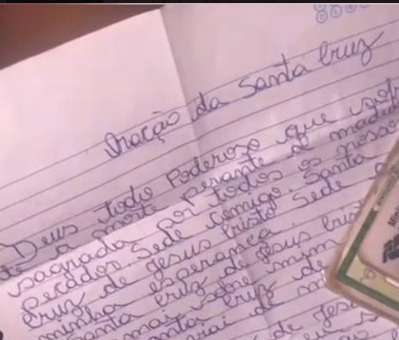 Oração da Santa Cruz
Deus todo Poderoso que sofr
te a morte perante a madei
sagrada Por todos os nosso
Pecados, Sede comigo. Santa
Cruz de Jesus Cristo Sede a
minha esperança.
Santa Cruz de Jesus Cris
mai sobre mim
Santa Cruz de
mai de m
de Jesu